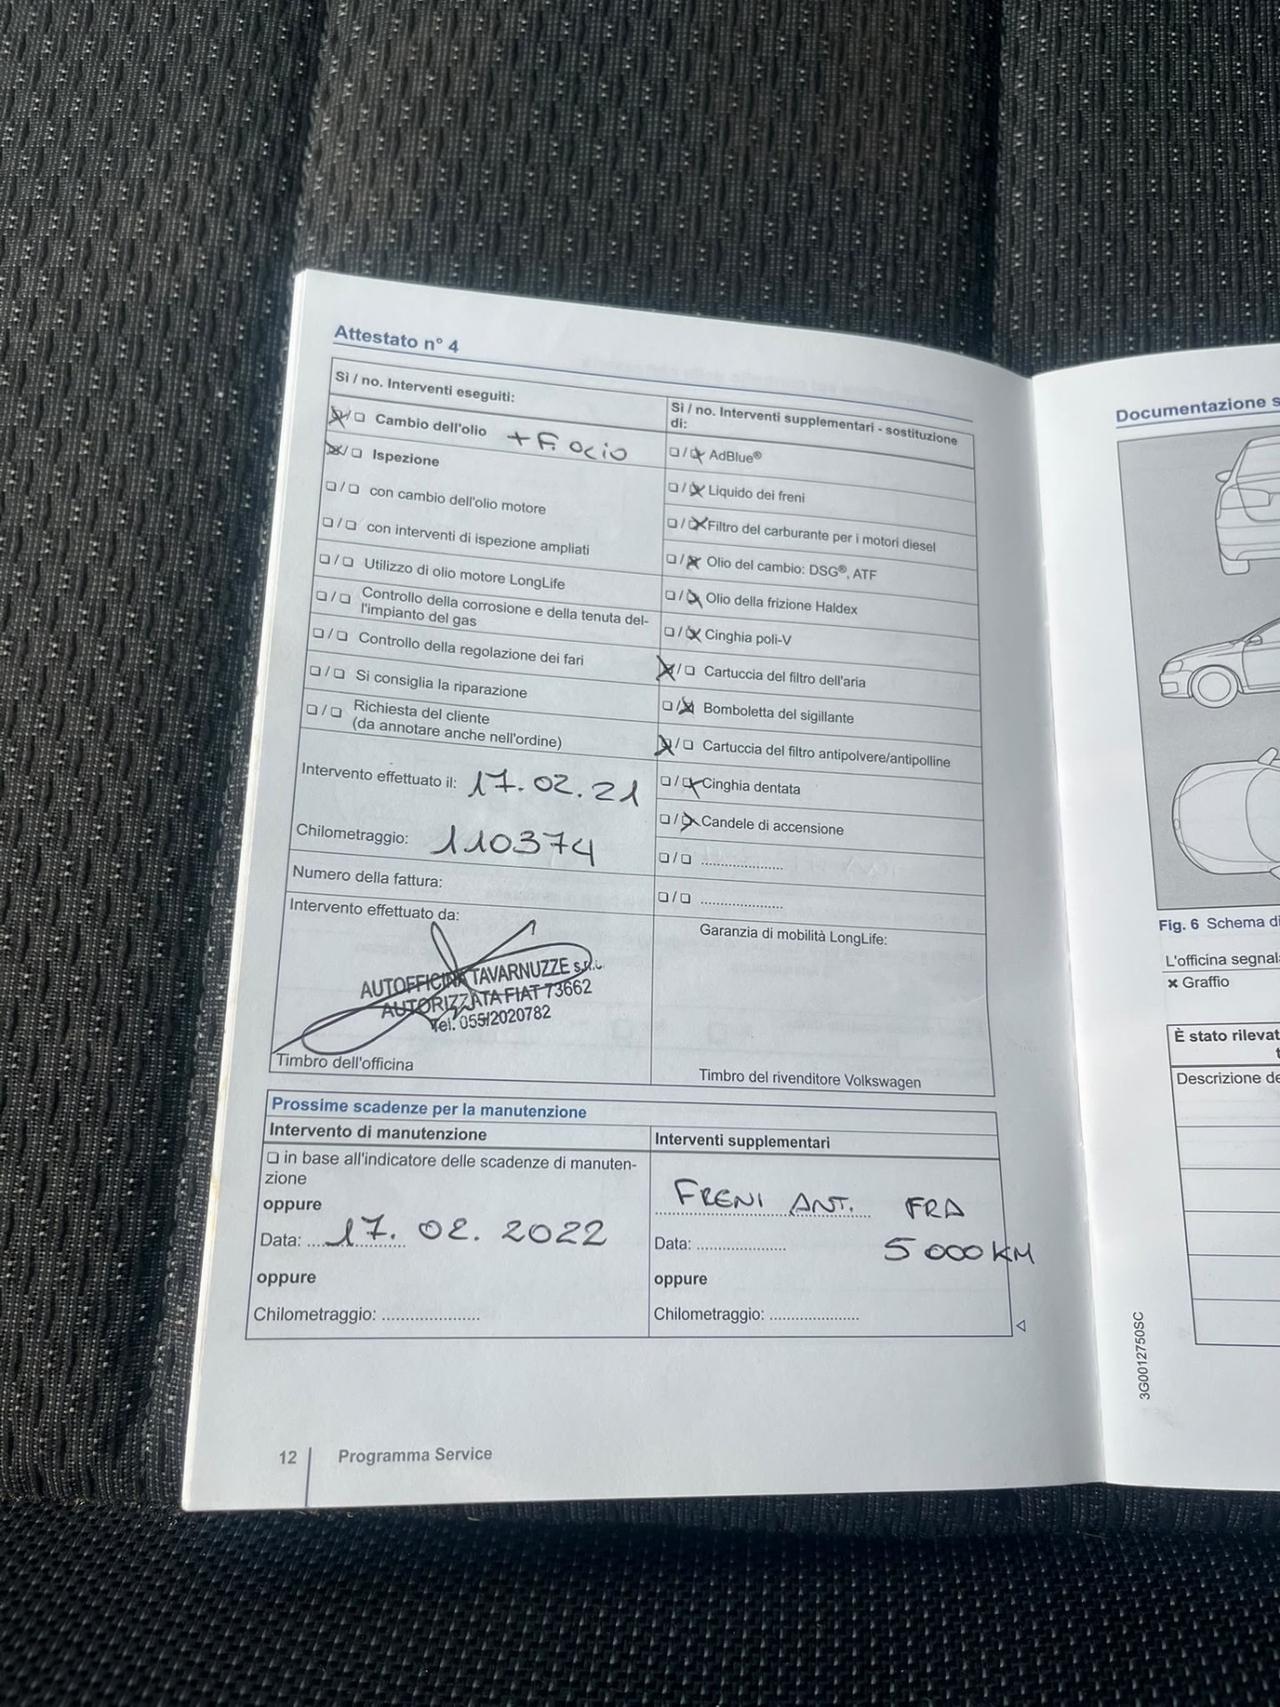 Attestato n° 4
Sì / no. Interventi eseguiti:
❏/❏ Cambio dell'olio + F. OCIO
❏/❏ Ispezione
❏/❏ con cambio dell'olio motore
❏/❏ con interventi di ispezione ampliati
❏/❏ Utilizzo di olio motore LongLife
❏/❏ Controllo della corrosione e della tenuta del-
l'impianto del gas
❏/❏ Controllo della regolazione dei fari
❏/❏ Si consiglia la riparazione
❏/❏ Richiesta del cliente
(da annotare anche nell'ordine)
Intervento effettuato il: 17.02.21
Chilometraggio: 110374
Numero della fattura:
Intervento effettuato da:
AUTOFFICINA TAVARNUZZE s.r.l.
AUTORIZZATA FIAT 73662
Tel. 055/2020782
Timbro dell'officina
Sì / no. Interventi supplementari - sostituzione
di:
❏/❏ AdBlue®
❏/❏ Liquido dei freni
❏/❏ Filtro del carburante per i motori diesel
❏/❏ Olio del cambio: DSG®, ATF
❏/❏ Olio della frizione Haldex
❏/❏ Cinghia poli-V
❏/❏ Cartuccia del filtro dell'aria
❏/❏ Bomboletta del sigillante
❏/❏ Cartuccia del filtro antipolvere/antipolline
❏/❏ Cinghia dentata
❏/❏ Candele di accensione
❏/❏ ....................
❏/❏ ....................
Garanzia di mobilità LongLife:
Timbro del rivenditore Volkswagen
Prossime scadenze per la manutenzione
Intervento di manutenzione
❏ in base all'indicatore delle scadenze di manuten-
zione
oppure
Data: 17. 02. 2022
oppure
Chilometraggio: ......................
Interventi supplementari
FRENI ANT. FRA
5000 KM
Data: ....................
oppure
Chilometraggio: ....................
12 Programma Service
Documentazione s
Fig. 6 Schema di
L'officina segnal
× Graffio
È stato rilevat
t
Descrizione de
3G0012750SC